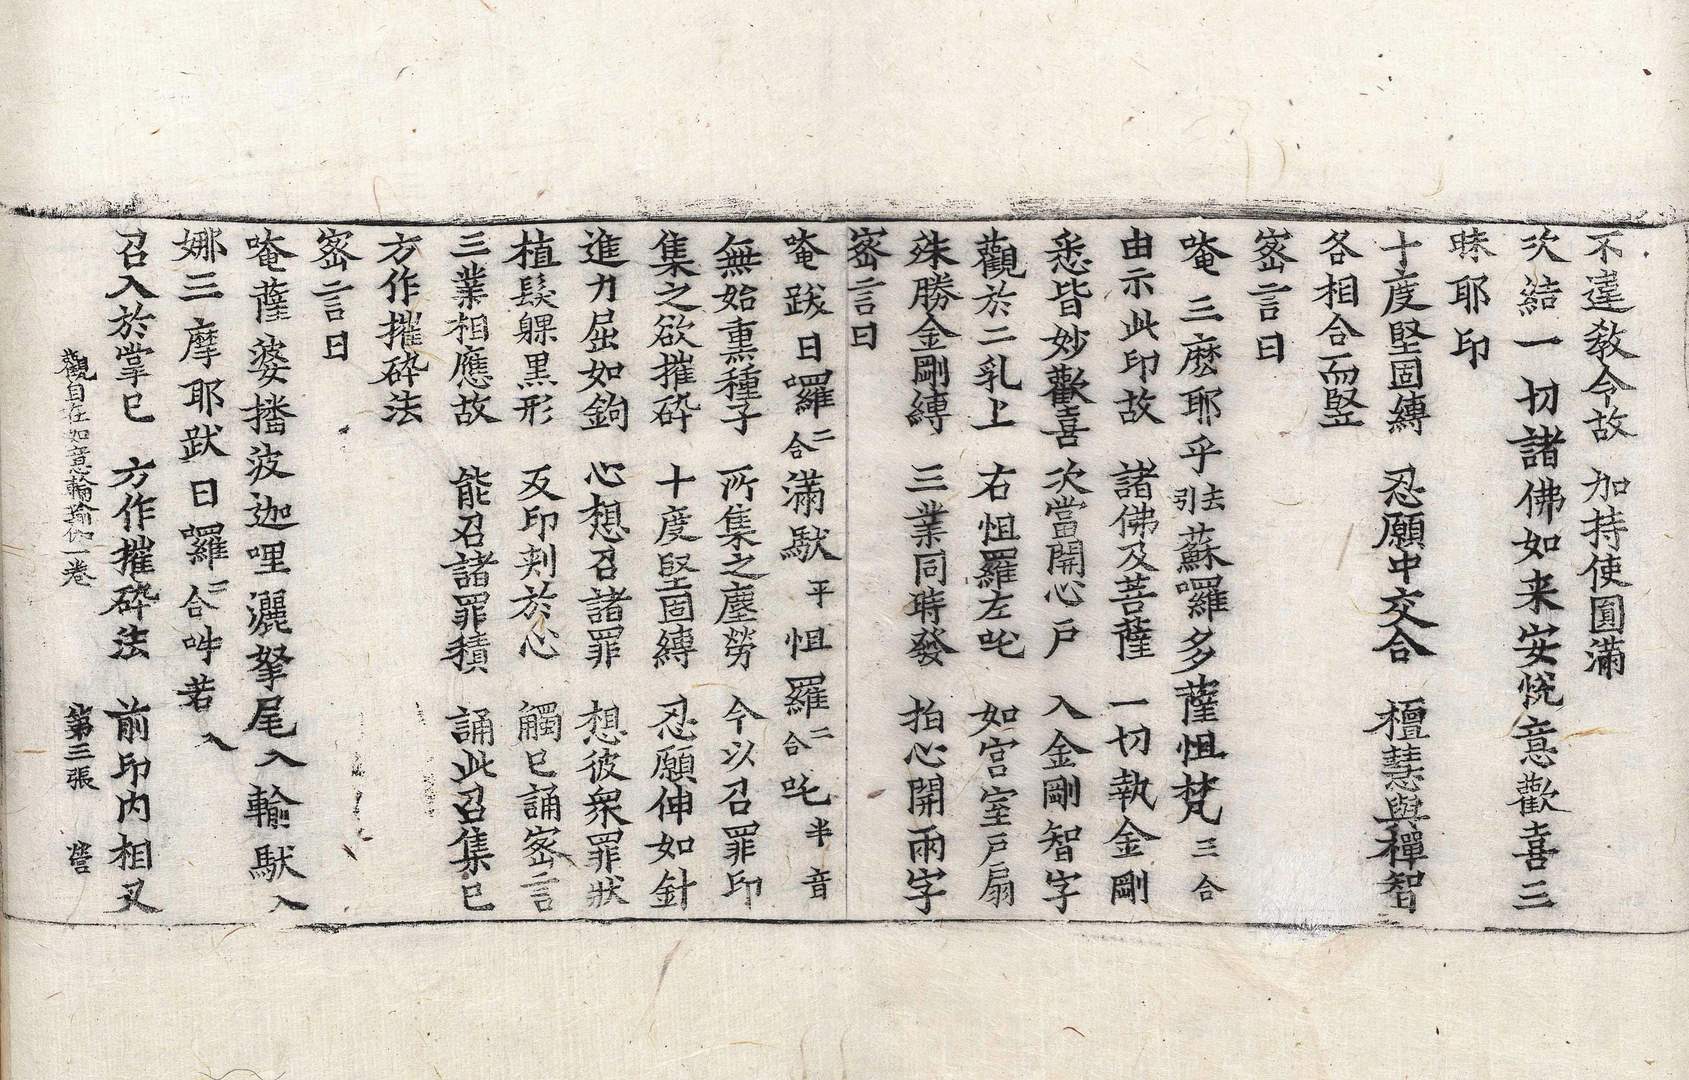 不違教令故　加持使圓滿
次結一切諸佛如来安悅意歡喜三
昧耶印
十度堅固縛　忍願中交合　檀慧與禪智
各相合而竪
密言曰
唵　三麽耶乎引去蘇囉多薩怛梵三合
由示此印故　諸佛及菩薩　一切執金剛
悉皆妙歡喜　次當開心戶　入金剛智字
觀於二乳上　右怛羅左吒　如宮室戶扇
殊勝金剛縛　三業同時發　拍心開兩字
密言曰
唵　跋日囉二合滿馱平怛羅二合吒半音
無始熏種子　所集之塵勞　今以召罪印
集之欲摧碎　十度堅固縛　忍願伸如針
進力屈如鉤　心想召諸罪　想彼衆罪狀
植髮躶黑形　反印刾於心　觸已誦密言
三業相應故　能召諸罪積　誦此召集已
方作摧碎法
密言曰
唵薩婆播波迦哩灑拏尾入輸馱入
娜三摩耶跋日囉二合吽若入
召入於掌已　方作摧碎法　前印內相叉
觀自在如意輪瑜伽一卷　第三張　營